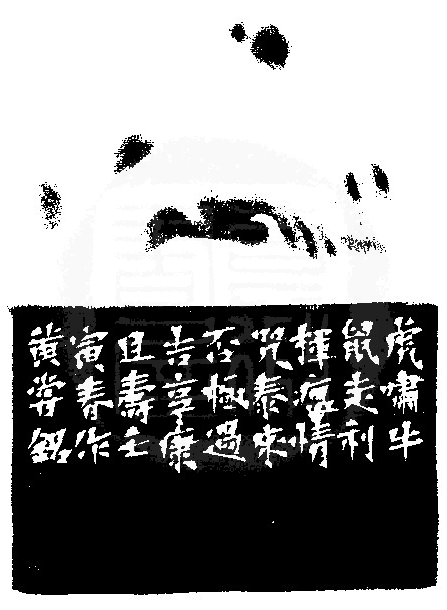 虎嘯牛
鼠走利
揮疫情
咒泰來
否極過
吉享康
且壽壬
寅春作
黃嘗銘